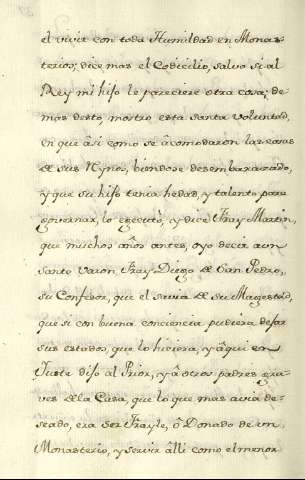 el vivir con toda Humildad en Monas-
terios; dice mas el Codicilio, salvo si al
Rey mi hijo le pareciere otra cosa; de
mas desto, mostro esta santa voluntad,
en que asi como se acomodaron las cosas
de sus Rynos, biendose desembarazado,
y que su hijo tenia hedad, y talento para
governar, lo egecutò, y dice Fray Martin,
que muchos años antes, oyo decia aun
Santo Varon, Fray Diego de San Pedro,
su Confesor, que el servia de su Magestad,
que si con buena conciencia pudiera dejar
sus estados, que lo hiciera, y aqui en
Juste dijo al Prior, y à otros padres gra-
ves de la Casa, que lo que mas avia de-
seado, era ser Frayle, ò Donado de un
Monasterio, y servir alli como el menor